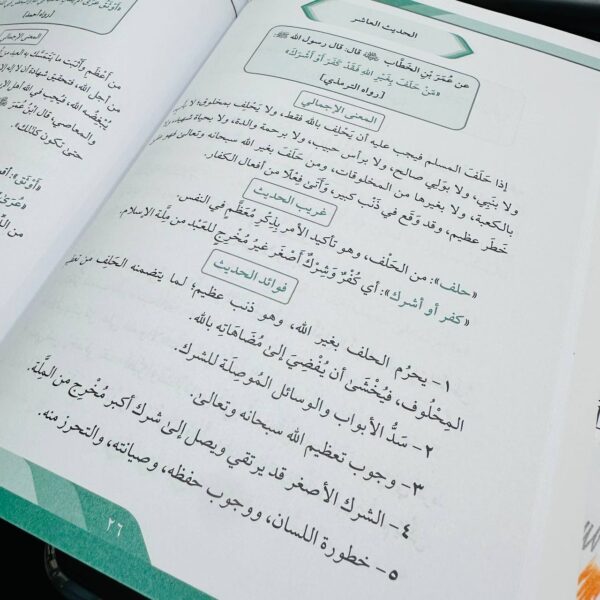 الحديث العاشر
عن عُمَرَ بْنِ الخَطَّاب ﷺ قال: قال رسول الله ﷺ:
«مَنْ حَلَفَ بِغَيْرِ اللهِ فَقَدْ كَفَرَ أَوْ أَشْرَكَ»
[رواه الترمذي]
المعنى الإجمالي
إذا حَلَفَ المسلم فيجب عليه أن يَحْلِف بالله فقط، ولا يَحْلِف بمخلوف؛ لا
ولا بنَبِي، ولا بوَلِي صالح، ولا برأس حبيب، ولا برحمة والدة، ولا بحياة
بالكعبة، ولا بغيرها من المخلوقات، ومن حَلَفَ بغير الله سبحانه وتعالى فهو على
خَطَر عظيم، وقد وَقَع في ذَنْب كبير، وَأَتَىٰ فِعْلًا من أفعال الكفار.
غريب الحديث
«حلف»: من الحَلْف، وهو تأكيد الأمر بِذِكْرِ مُعَظَّمٍ في النفس.
«كفر أو أشرك»: أي كُفْرٌ وَشِرْكٌ أَصْغَر غيرُ مُخْرِجٍ للعَبْد من مِلَّة الإسلام.
فوائد الحديث
١- يحرُم الحلف بغير الله، وهو ذنب عظيم؛ لما يتضمنه الحَلِف من تعظيم
المِحْلُوف، فيُخْشَىٰ أن يُفْضِيَ إلىٰ مُضَاهَاتِهِ بالله.
٢- سَدُّ الأبواب والوسائل المُوصِلَة للشرك.
٣- وجوب تعظيم الله سبحانه وتعالىٰ.
٤- الشرك الأصغر قد يرتقي ويصل إلىٰ شرك أكبر مُخْرِج من المِلَّة.
٥- خطورة اللسان، ووجوب حفظه، وصيانته، والتحرز منه.
٢٦
[رواه أحمد]
المعنى الإجمالي
من أعظم
من أجل الله، فتحقيق شهادة أن لا إله
يُبْغِضُه الله، فيجب
والمعاصي، قال ابْنُ عُمَرَ
حتى يكون كذلك».